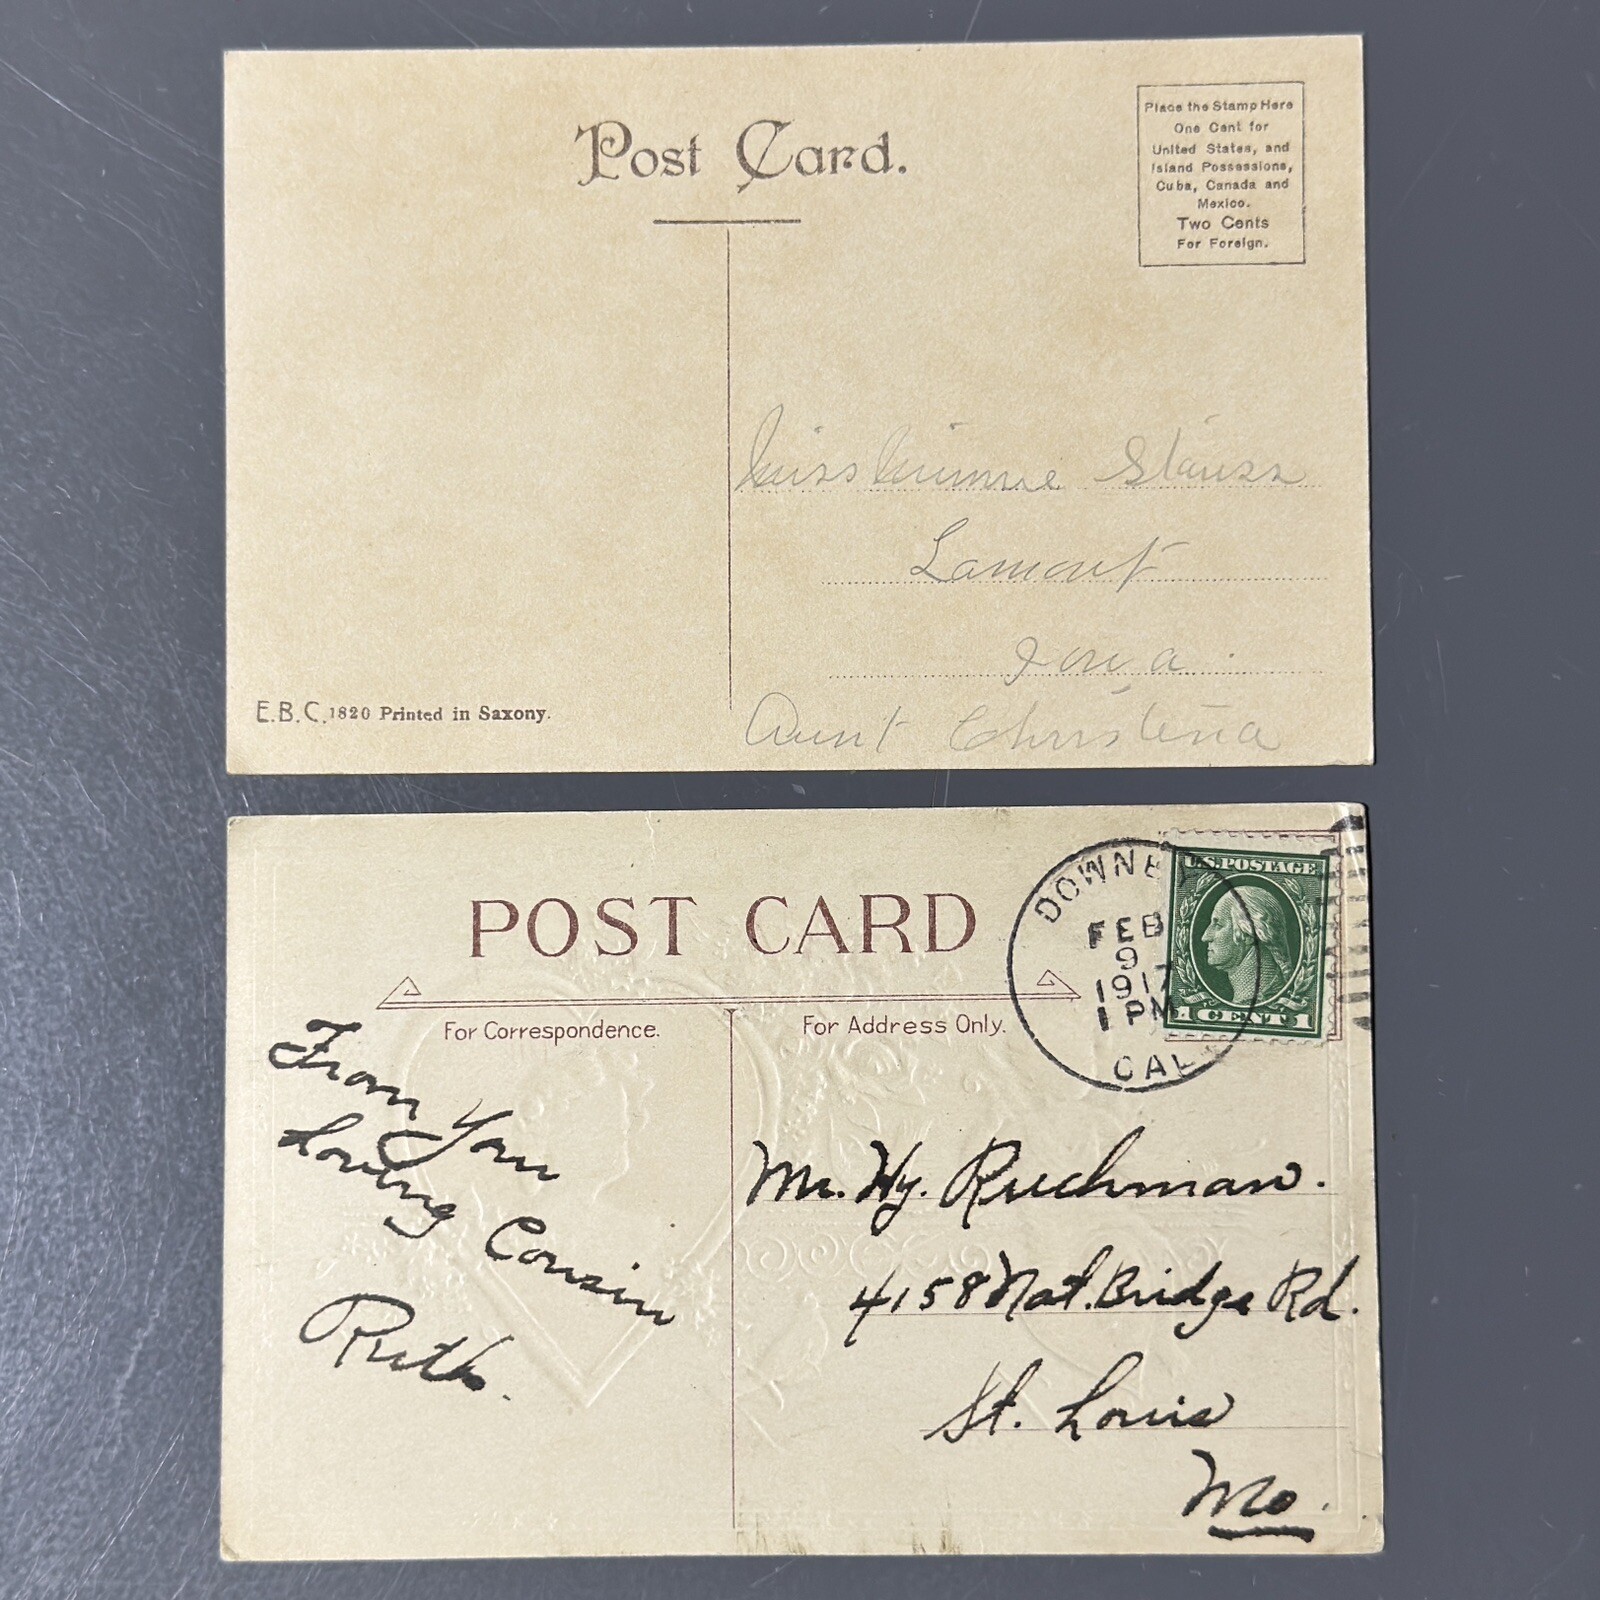 Post Card.
Place the Stamp Here
One Cent for
United States, and
Island Possessions,
Cuba, Canada and
Mexico.
Two Cents
For Foreign.
Miss Minnie Stauss
Lamont
Iowa.
Aunt Christena
E.B.C. 1820 Printed in Saxony.
POST CARD
DOWNEY
FEB
9
1917
1 PM
CAL.
U.S. POSTAGE
1 CENT 1
For Correspondence.
For Address Only.
From Your
Loving Cousin
Ruth.
Mr. Hy. Ruchman.
4158 Nat. Bridge Rd.
St. Louis
Mo.